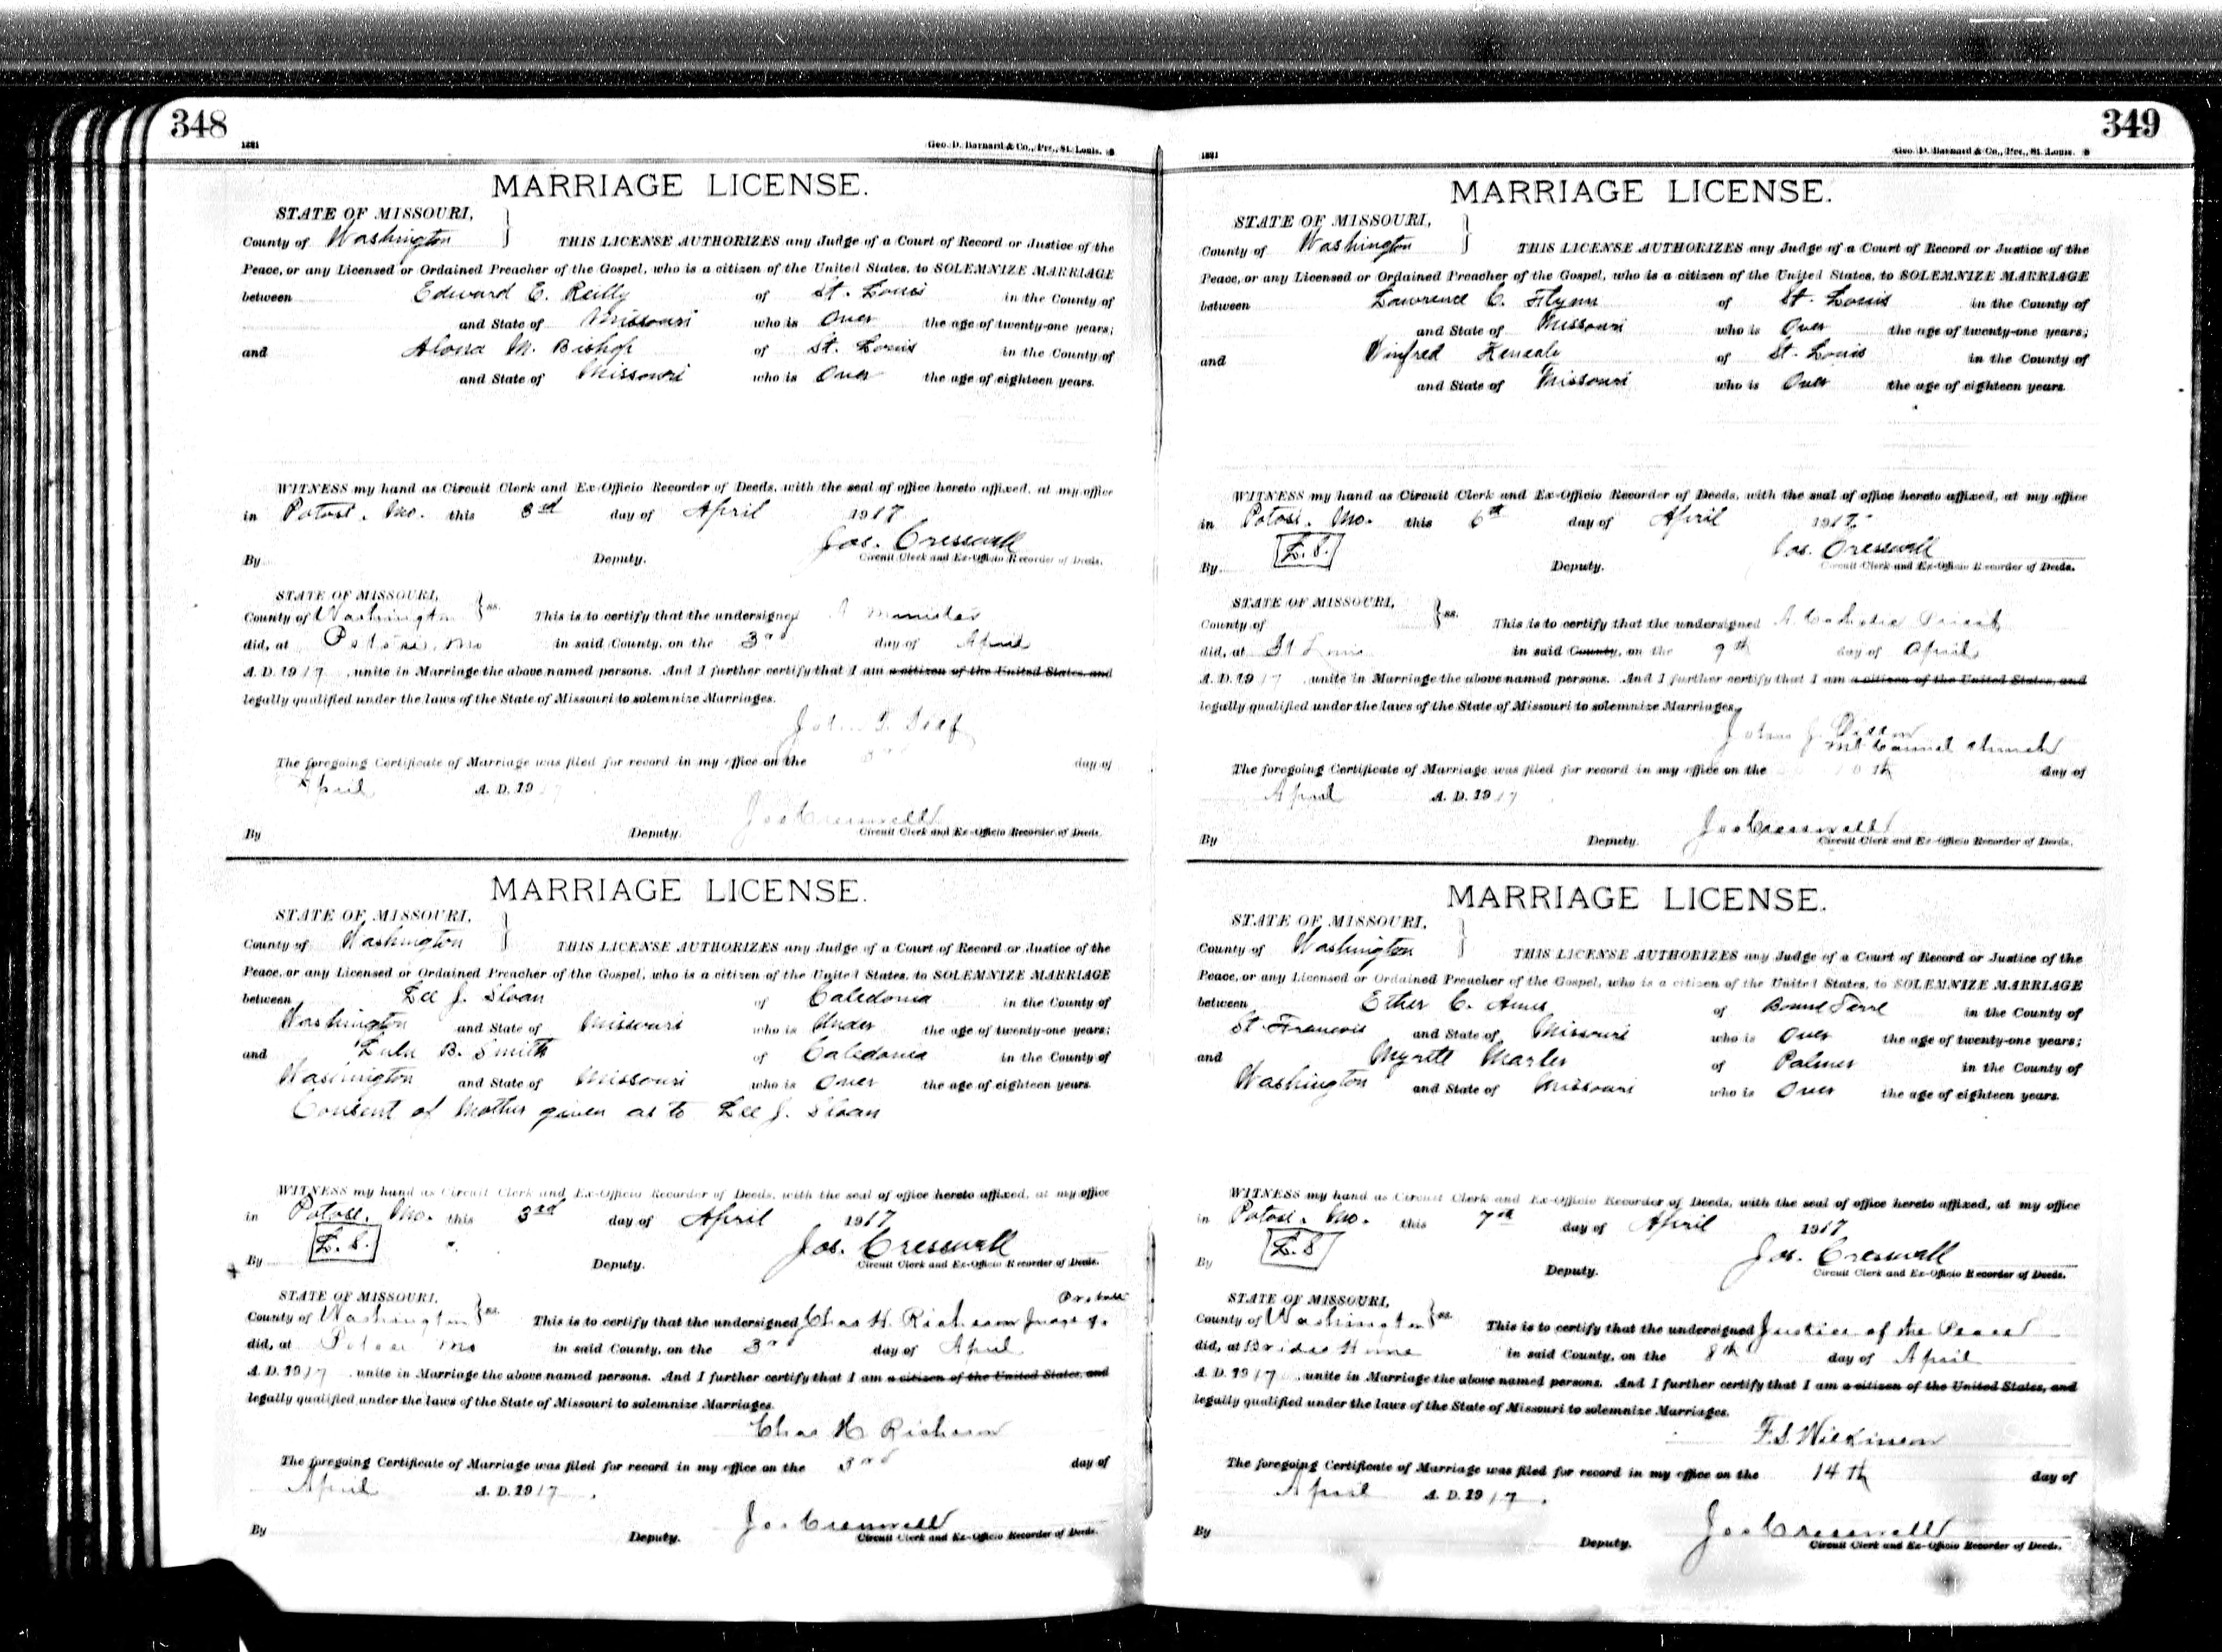 348
1221
Geo. D. Barnard & Co., Prs., St. Louis.
MARRIAGE LICENSE.
STATE OF MISSOURI,
County of Washington THIS LICENSE AUTHORIZES any Judge of a Court of Record or Justice of the
Peace, or any Licensed or Ordained Preacher of the Gospel, who is a citizen of the United States, to SOLEMNIZE MARRIAGE
between Edward E. Reilly of St. Louis in the County of
and State of Missouri who is Over the age of twenty-one years;
and M. Bishop of St. Louis in the County of
and State of Missouri who is Over the age of eighteen years.
WITNESS my hand as Circuit Clerk and Ex-Officio Recorder of Deeds, with the seal of office hereto affixed, at my office
in Potosi, Mo. this 3rd day of April 1917
Jos. Cresswell
By Deputy. Circuit Clerk and Ex-Officio Recorder of Deeds.
STATE OF MISSOURI,
County of Washington ss. This is to certify that the undersigned A minister
did, at Potosi, Mo in said County, on the 3rd day of April
A. D. 1917 unite in Marriage the above named persons. And I further certify that I am a citizen of the United States, and
legally qualified under the laws of the State of Missouri to solemnize Marriages.
John T.
The foregoing Certificate of Marriage was filed for record in my office on the 3rd day of
April A. D. 1917
Jos Cresswell
By Deputy. Circuit Clerk and Ex-Officio Recorder of Deeds.
MARRIAGE LICENSE.
STATE OF MISSOURI,
County of Washington THIS LICENSE AUTHORIZES any Judge of a Court of Record or Justice of the
Peace, or any Licensed or Ordained Preacher of the Gospel, who is a citizen of the United States, to SOLEMNIZE MARRIAGE
between Lee J. Sloan of Caledonia in the County of
Washington and State of Missouri who is Under the age of twenty-one years;
and Lulu B. Smith of Caledonia in the County of
Washington and State of Missouri who is Over the age of eighteen years.
Consent of Mother given as to Lee J. Sloan
WITNESS my hand as Circuit Clerk and Ex-Officio Recorder of Deeds, with the seal of office hereto affixed, at my office
in Potosi, Mo. this 3rd day of April 1917
L. S. Jos. Cresswell
By Deputy. Circuit Clerk and Ex-Officio Recorder of Deeds.
STATE OF MISSOURI, Probate
County of Washington ss. This is to certify that the undersigned Chas H. Richeson Judge of
did, at Potosi Mo in said County, on the 3rd day of April
A. D. 1917 unite in Marriage the above named persons. And I further certify that I am a citizen of the United States, and
legally qualified under the laws of the State of Missouri to solemnize Marriages.
Chas H Richeson
The foregoing Certificate of Marriage was filed for record in my office on the 3rd day of
April A. D. 1917.
Jos Cresswell
By Deputy. Circuit Clerk and Ex-Officio Recorder of Deeds.
349
1221
Geo. D. Barnard & Co., Prs., St. Louis.
MARRIAGE LICENSE.
STATE OF MISSOURI,
County of Washington THIS LICENSE AUTHORIZES any Judge of a Court of Record or Justice of the
Peace, or any Licensed or Ordained Preacher of the Gospel, who is a citizen of the United States, to SOLEMNIZE MARRIAGE
between Lawrence C. Flynn of St. Louis in the County of
and State of Missouri who is Over the age of twenty-one years;
and Winfred of St. Louis in the County of
and State of Missouri who is Over the age of eighteen years.
WITNESS my hand as Circuit Clerk and Ex-Officio Recorder of Deeds, with the seal of office hereto affixed, at my office
in Potosi, Mo. this 6th day of April 1917.
L. S. Jos. Cresswell
By Deputy. Circuit Clerk and Ex-Officio Recorder of Deeds.
STATE OF MISSOURI,
County of ss. This is to certify that the undersigned A Catholic Priest
did, at St Louis in said County, on the 9th day of April
A. D. 1917 unite in Marriage the above named persons. And I further certify that I am a citizen of the United States, and
legally qualified under the laws of the State of Missouri to solemnize Marriages.
J. Dillon
Mt Carmel Church
The foregoing Certificate of Marriage was filed for record in my office on the 10th day of
April A. D. 1917
Jos Cresswell
By Deputy. Circuit Clerk and Ex-Officio Recorder of Deeds.
MARRIAGE LICENSE.
STATE OF MISSOURI,
County of Washington THIS LICENSE AUTHORIZES any Judge of a Court of Record or Justice of the
Peace, or any Licensed or Ordained Preacher of the Gospel, who is a citizen of the United States, to SOLEMNIZE MARRIAGE
between Ether C. Ames of Bonne Terre in the County of
St. Francois and State of Missouri who is Over the age of twenty-one years;
and Myrtle Marler of Palmer in the County of
Washington and State of Missouri who is Over the age of eighteen years.
WITNESS my hand as Circuit Clerk and Ex-Officio Recorder of Deeds, with the seal of office hereto affixed, at my office
in Potosi, Mo. this 7th day of April 1917
L. S. Jos. Cresswell
By Deputy. Circuit Clerk and Ex-Officio Recorder of Deeds.
STATE OF MISSOURI,
County of Washington ss. This is to certify that the undersigned Justice of the Peace
did, at Brides Home in said County, on the 8th day of April
A. D. 1917 unite in Marriage the above named persons. And I further certify that I am a citizen of the United States, and
legally qualified under the laws of the State of Missouri to solemnize Marriages.
F. S. Wilkinson
The foregoing Certificate of Marriage was filed for record in my office on the 14th day of
April A. D. 1917.
Jos Cresswell
By Deputy. Circuit Clerk and Ex-Officio Recorder of Deeds.